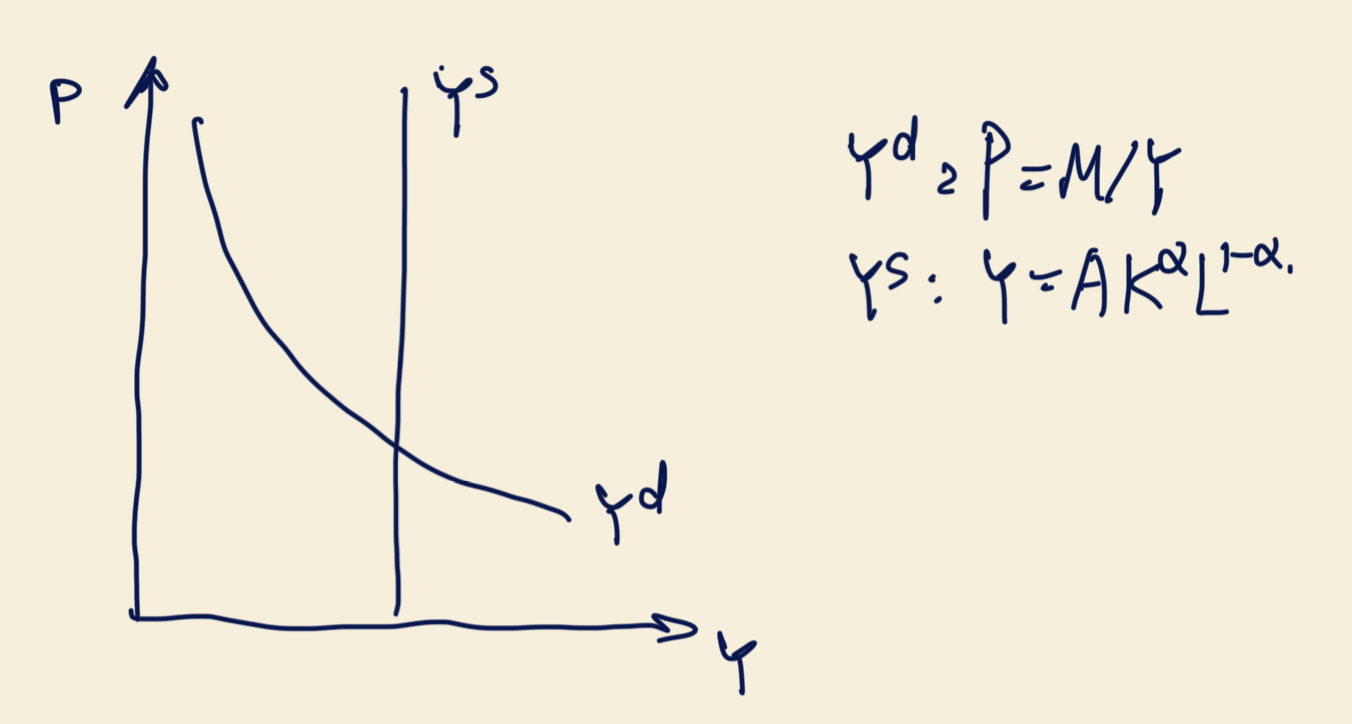 P
Yˢ
Yᵈ
Y
Yᵈ: P=M/Y
Yˢ: Y=AK^αL^{1-α}.